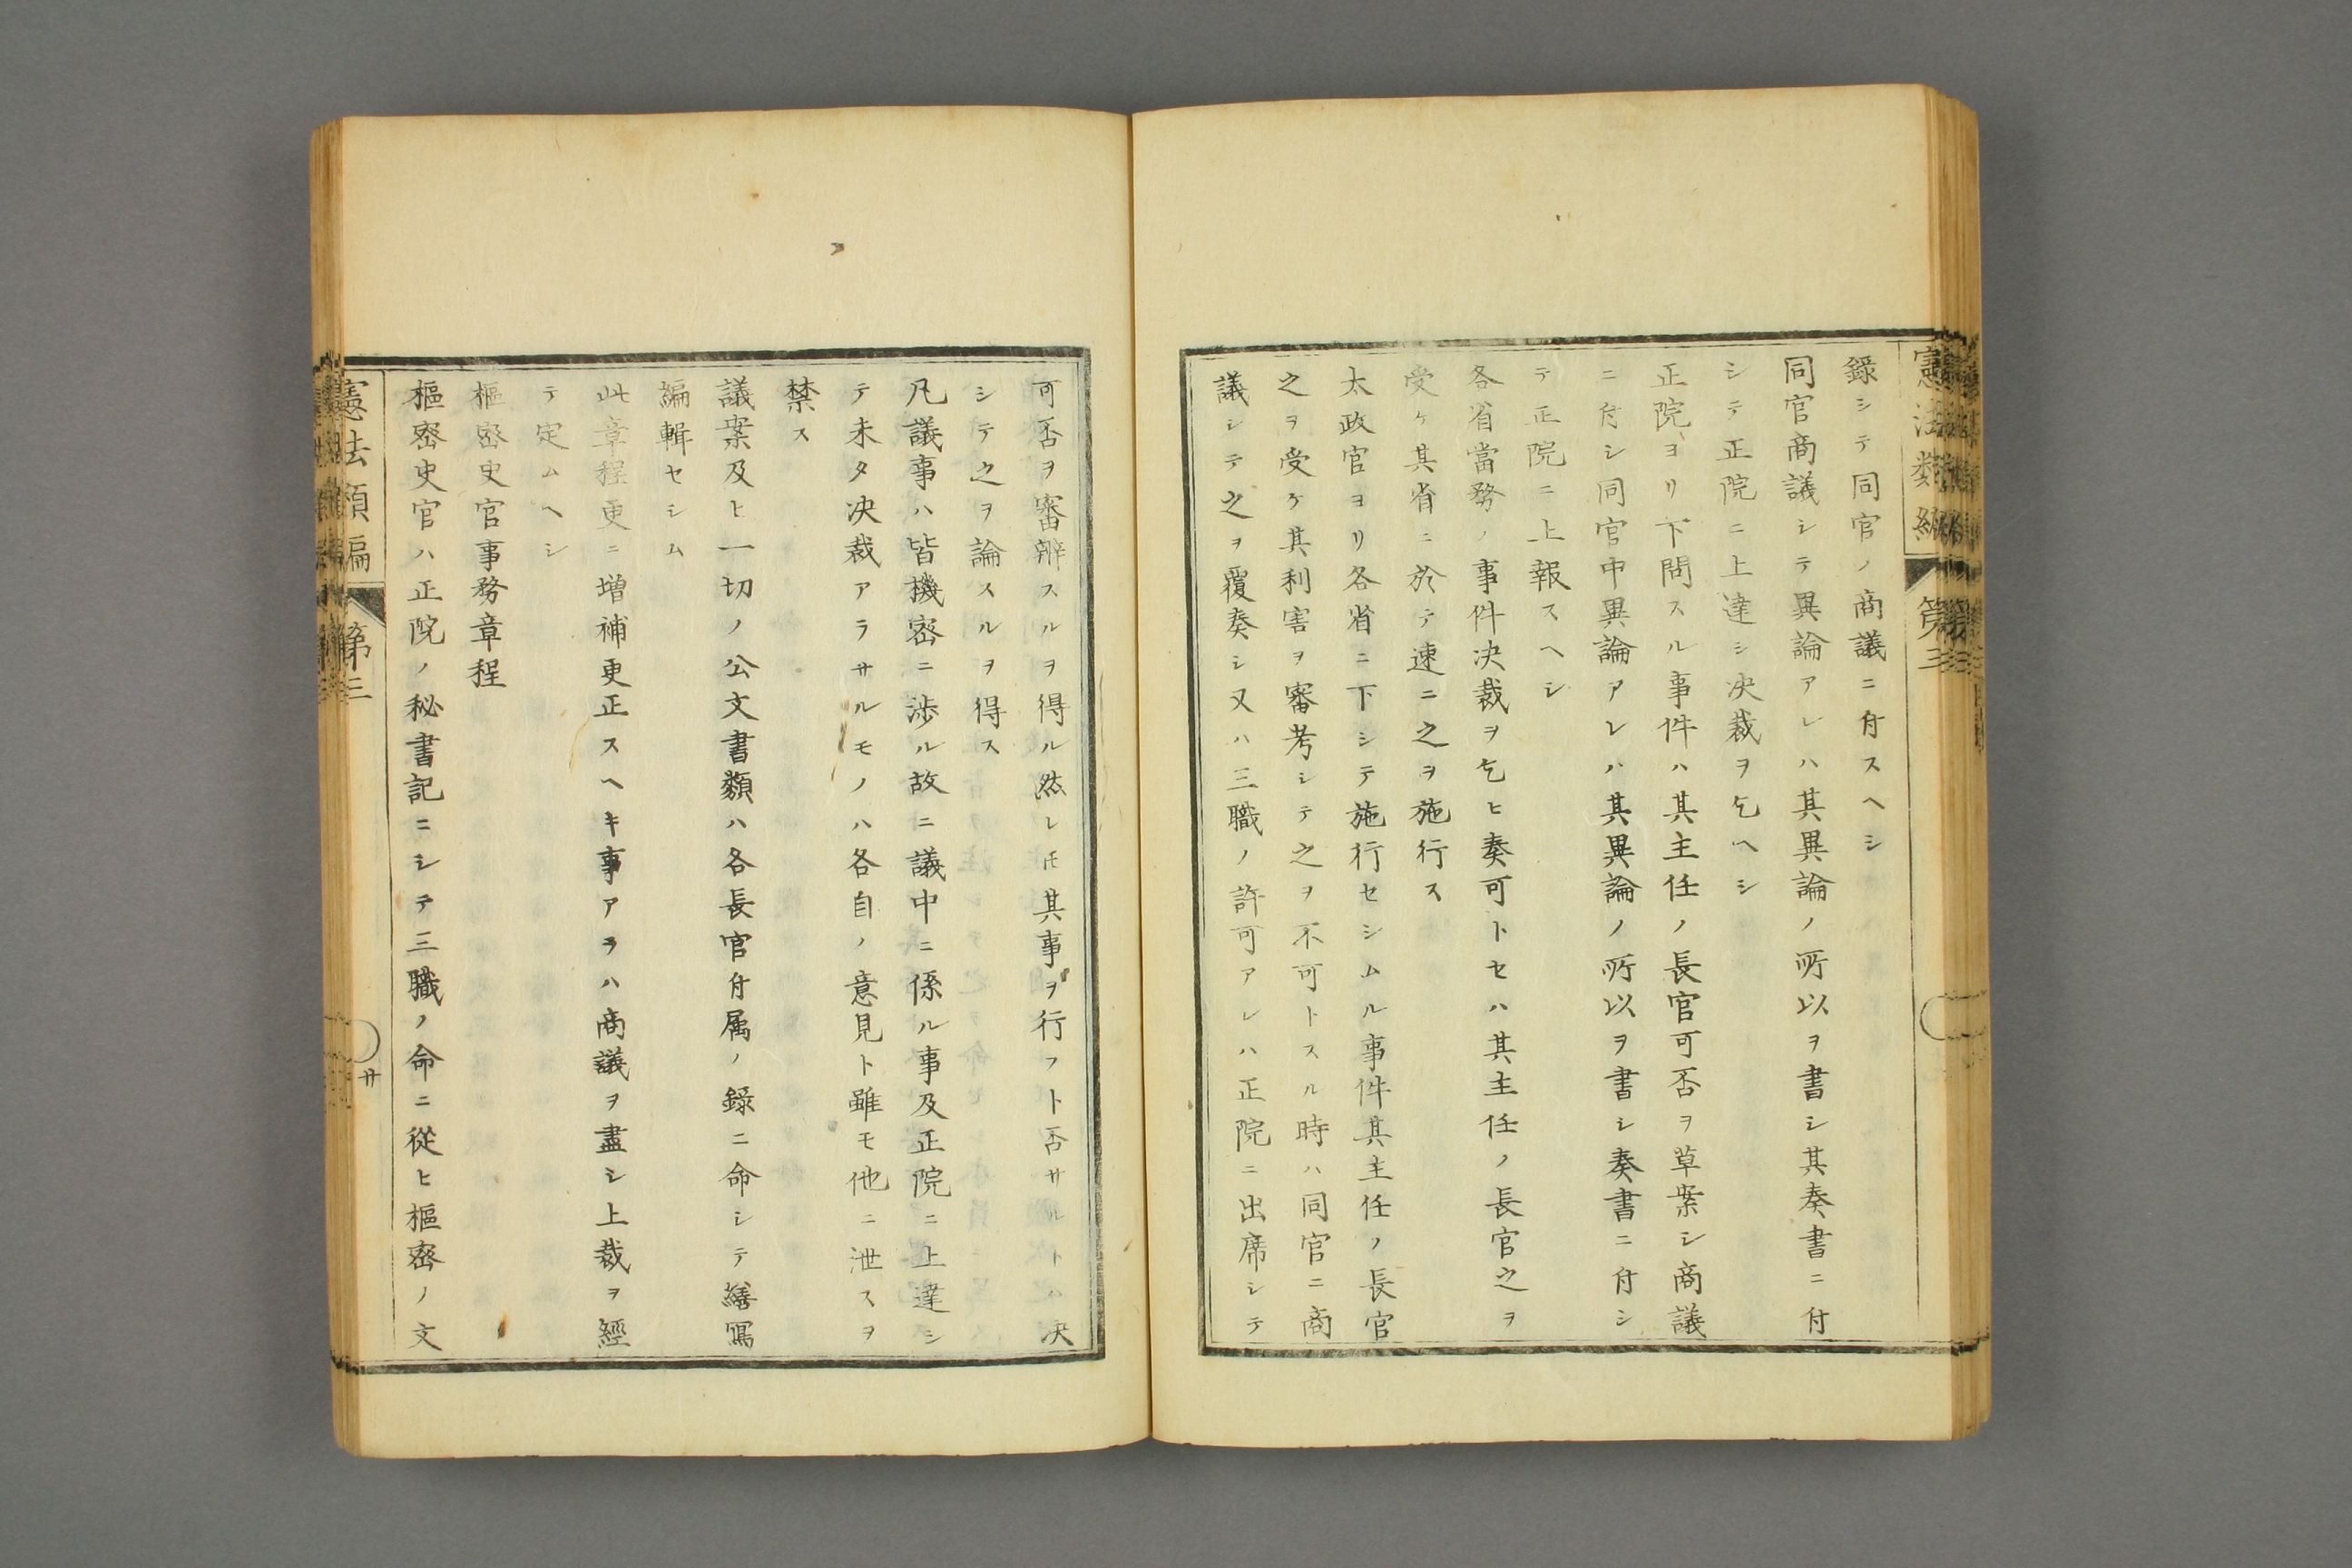 錄シテ同官ノ商議ニ付スヘシ
同官商議シテ異論アレハ其異論ノ所以ヲ書シ其奏書ニ付
シテ正院ニ上達シ决裁ヲ乞ヘシ
正院ヨリ下問スル事件ハ其主任ノ長官可否ヲ草案シ商議
ニ付シ同官中異論アレハ其異論ノ所以ヲ書シ奏書ニ付シ
テ正院ニ上報スヘシ
各省當務ノ事件决裁ヲ乞ヒ奏可トセハ其主任ノ長官之ヲ
受ケ其省ニ於テ速ニ之ヲ施行ス
太政官ヨリ各省ニ下シテ施行セシムル事件其主任ノ長官
之ヲ受ケ其利害ヲ審考シテ之ヲ不可トスル時ハ同官ニ商
議シテ之ヲ覆奏シ又ハ三職ノ許可アレハ正院ニ出席シテ
可否ヲ審辨スルヲ得ル然レ𪜈其事ヲ行フト否サルトハ决
シテ之ヲ論スルヲ得ス
凡議事ハ皆機密ニ渉ル故ニ議中ニ係ル事及正院ニ上達シ
テ未タ决裁アラサルモノハ各自ノ意見ト雖モ他ニ泄スヲ
禁ス
議案及ヒ一切ノ公文書類ハ各長官付属ノ錄ニ命シテ繕寫
編輯セシム
此章程更ニ増補更正スヘキ事アラハ商議ヲ盡シ上裁ヲ經
テ定ムヘシ
樞密史官事務章程
樞密史官ハ正院ノ秘書記ニシテ三職ノ命ニ從ヒ樞密ノ文
憲法類編 第三
廿